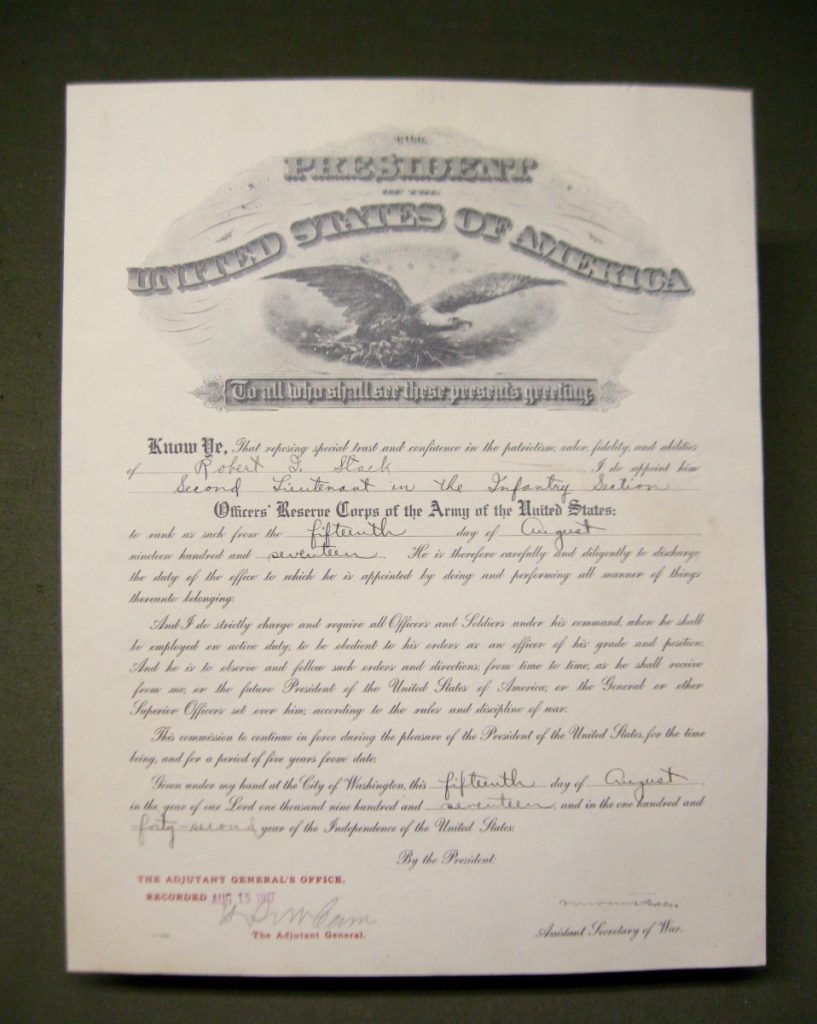 THE
PRESIDENT
OF THE
UNITED STATES OF AMERICA
To all who shall see these presents greeting:
Know Ye, That reposing special trust and confidence in the patriotism, valor, fidelity, and abilities
of Robert I. Stack, I do appoint him
Second Lieutenant in the Infantry Section
Officers' Reserve Corps of the Army of the United States:
to rank as such from the fifteenth day of August
nineteen hundred and seventeen. He is therefore carefully and diligently to discharge
the duty of the office to which he is appointed by doing and performing all manner of things
thereunto belonging.
And I do strictly charge and require all Officers and Soldiers under his command, when he shall
be employed on active duty, to be obedient to his orders as an officer of his grade and position.
And he is to observe and follow such orders and directions, from time to time, as he shall receive
from me, or the future President of the United States of America, or the General or other
Superior Officers set over him, according to the rules and discipline of war.
This commission to continue in force during the pleasure of the President of the United States, for the time
being, and for a period of five years from date.
Given under my hand at the City of Washington, this fifteenth day of August,
in the year of our Lord one thousand nine hundred and seventeen, and in the one hundred and
forty-second year of the Independence of the United States.
By the President:
THE ADJUTANT GENERAL'S OFFICE.
RECORDED AUG 15 1917
The Adjutant General.
Assistant Secretary of War.